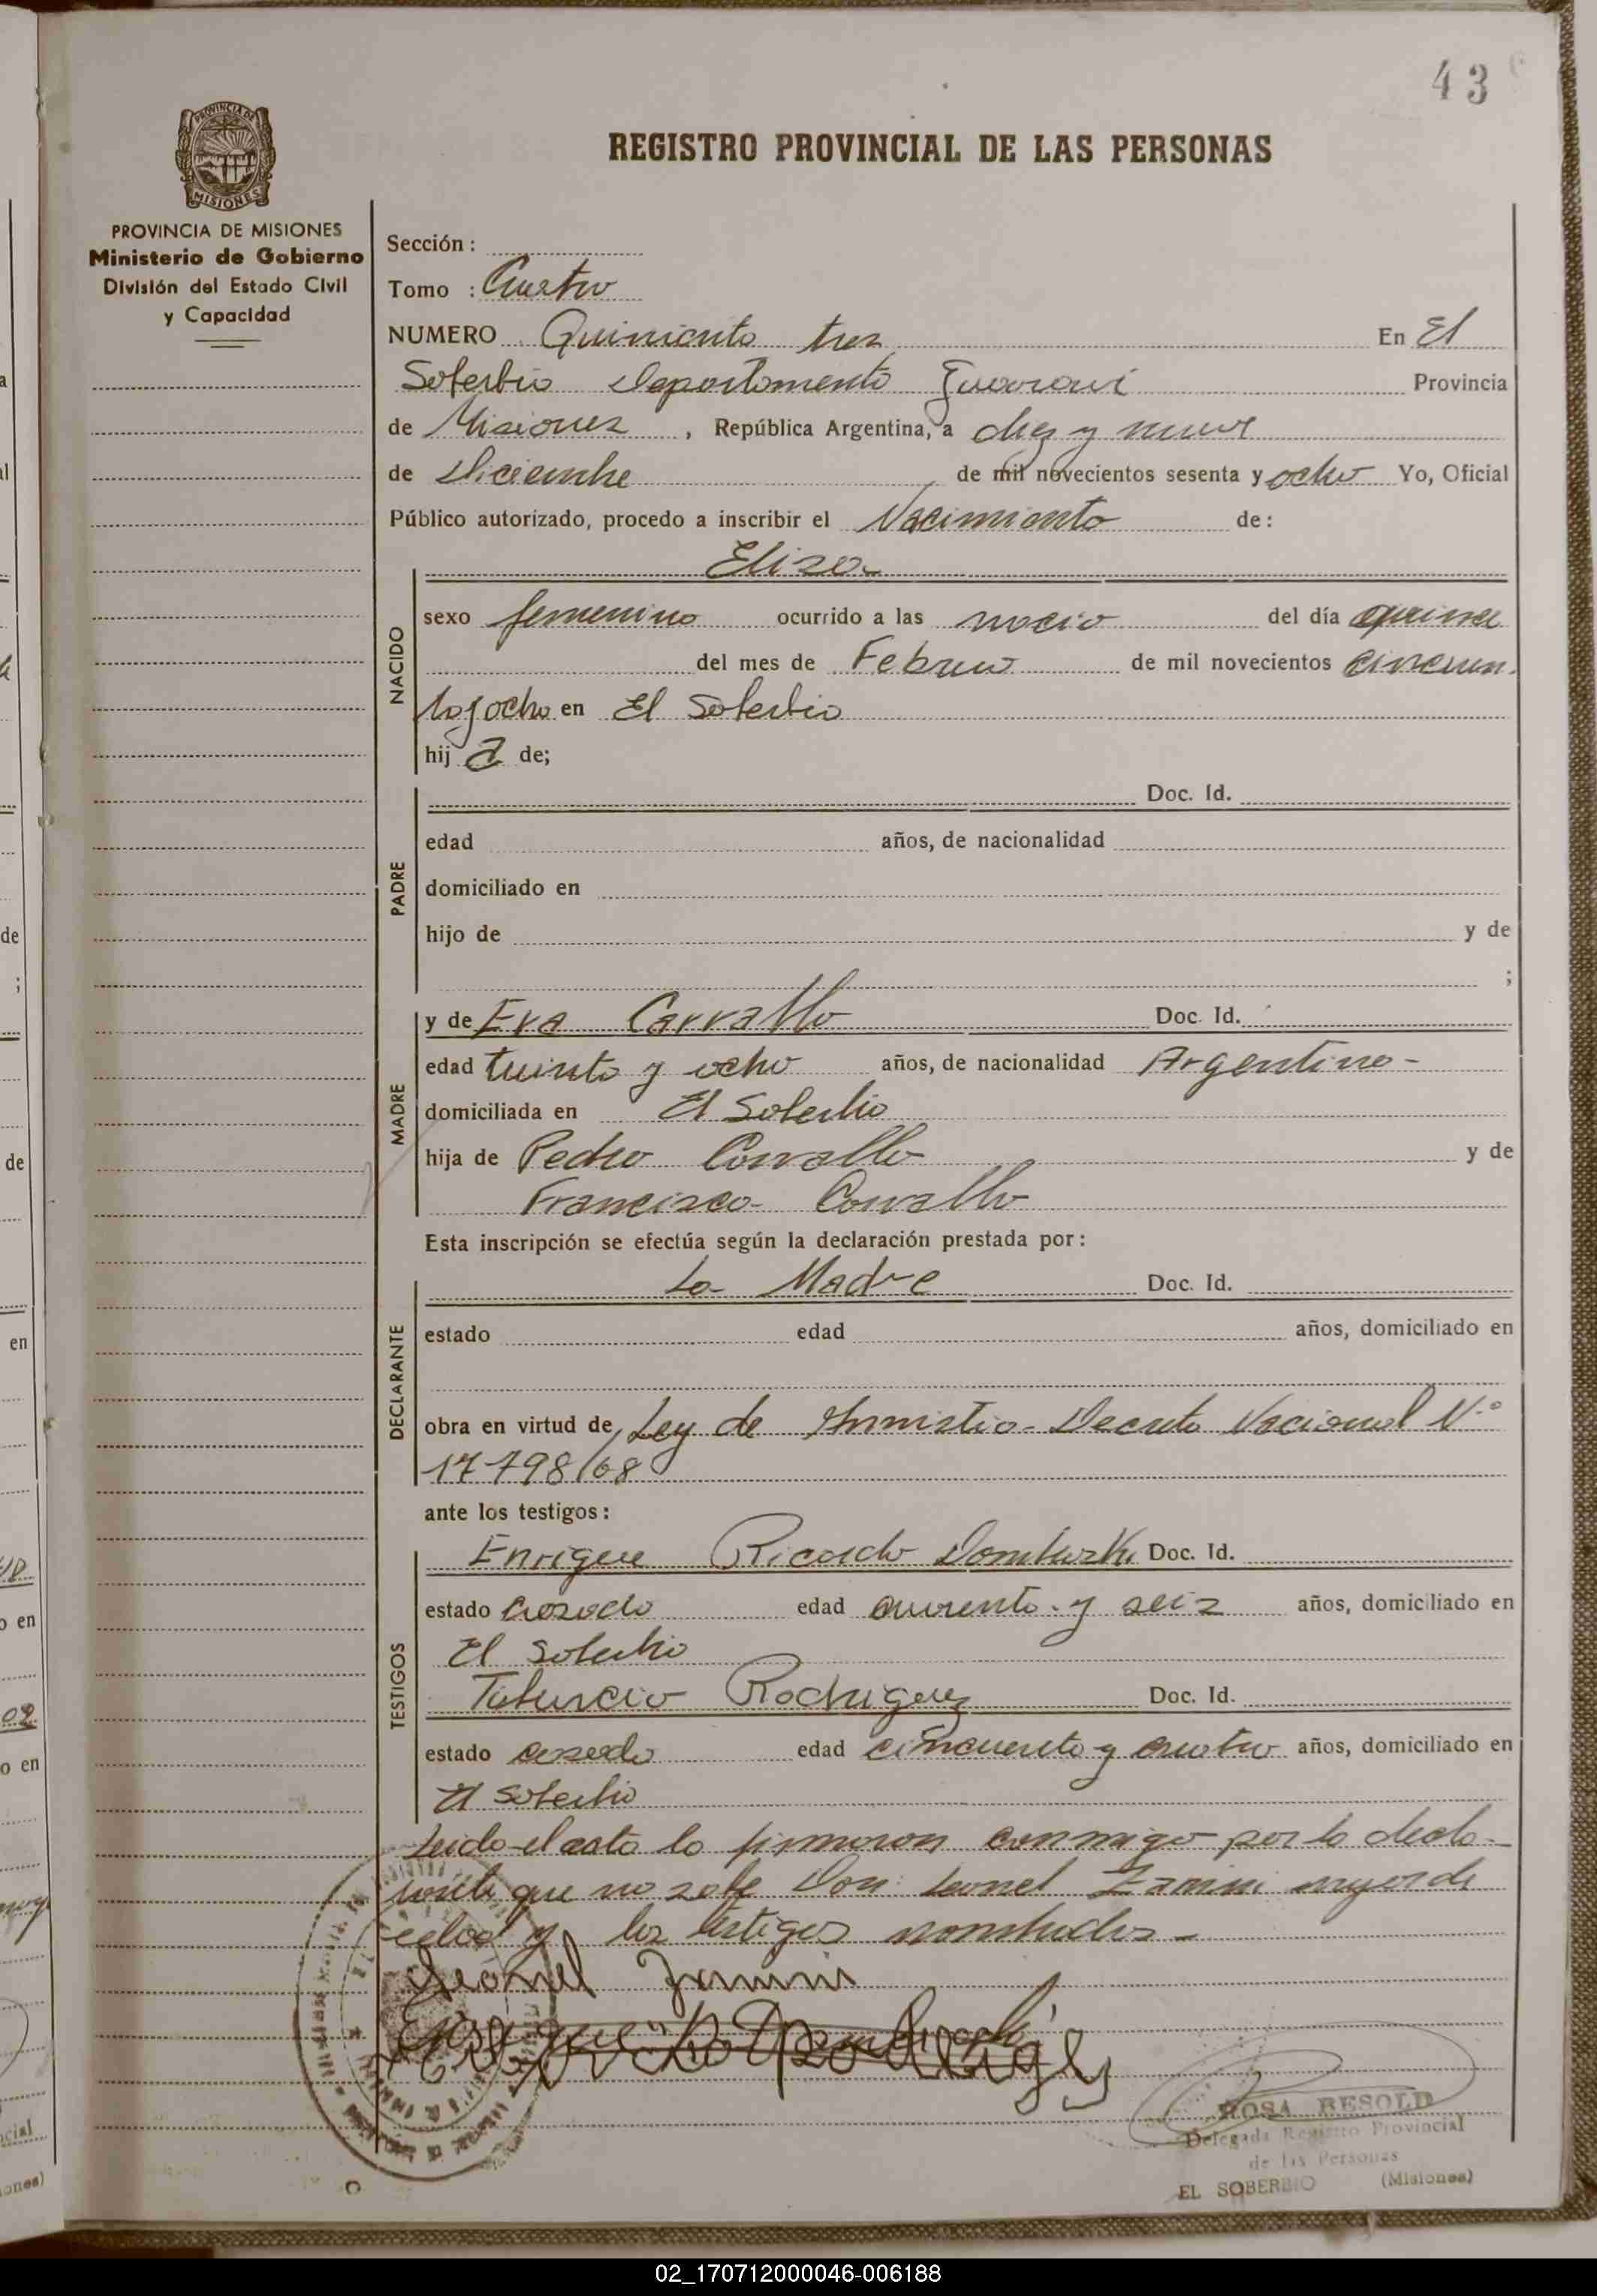 43
REGISTRO PROVINCIAL DE LAS PERSONAS
PROVINCIA DE MISIONES
PROVINCIA DE MISIONES
Ministerio de Gobierno
División del Estado Civil
y Capacidad
Sección :
Tomo : Cuatro
NUMERO Quiniento tres En El
Soberbio Departamento Guaraní Provincia
de Misiones, República Argentina, a diez y nueve
de Diciembre de mil novecientos sesenta y ocho Yo, Oficial
Público autorizado, procedo a inscribir el Nacimiento de:
NACIDO
Elisa
sexo femenino ocurrido a las nació del día quince
del mes de Febrero de mil novecientos cincuen-
ta y ocho en El Soberbio
hij a de;
PADRE
Doc. Id.
edad años, de nacionalidad
domiciliado en
hijo de y de
;
MADRE
y de Eva Carvallo Doc. Id.
edad treinta y ocho años, de nacionalidad Argentina-
domiciliada en El Soberbio
hija de Pedro Carvallo y de
Francisca Carvallo
Esta inscripción se efectúa según la declaración prestada por:
DECLARANTE
La Madre Doc. Id.
estado edad años, domiciliado en
obra en virtud de Ley de Amnistia- Decreto Nacional Nº
17798/68
ante los testigos:
TESTIGOS
Enrique Ricardo Doc. Id.
estado casado edad cuarenta y seis años, domiciliado en
El Soberbio
Tiburcio Rodriguez Doc. Id.
estado casado edad cincuenta y cuatro años, domiciliado en
El Soberbio
Leido el acta lo firmaron conmigo por la decla-
rante que no sabe Don Leonel mayor de
edad y los testigos nombrados-
Leonel
Rodrigez
ROSA BESOLD
Delegada Registro Provincial
de las Personas
EL SOBERBIO (Misiones)
02_170712000046-006188